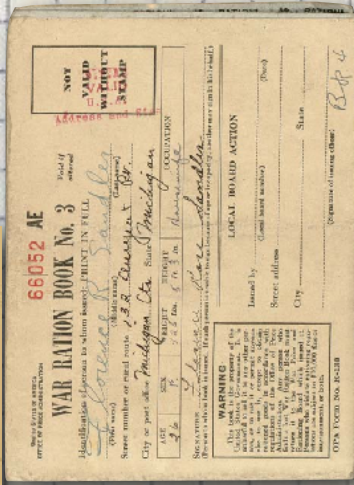 UNITED STATES OF AMERICA
OFFICE OF PRICE ADMINISTRATION
66052 AE
WAR RATION BOOK No. 3
Void if altered
NOT
VALID
WITHOUT
STAMP
Identification of person to whom issued: PRINT IN FULL
Florence R Sandler
(First name) (Middle name) (Last name)
Street number or rural route 132
City or post office Michigan Cty State Michigan
AGE SEX WEIGHT HEIGHT OCCUPATION
26 F Lbs. 5 Ft. 3 In. Housewife
SIGNATURE
(Person to whom book is issued. If such person is unable to sign because of age or incapacity, another may sign in his behalf.)
WARNING
This book is the property of the
United States Government. It is
unlawful to sell it to any other per-
son, or to use it or permit anyone
else to use it, except to obtain
rationed goods in accordance with
regulations of the Office of Price
Administration. Any person who
finds a lost War Ration Book must
return it to the War Price and
Rationing Board which issued it.
Persons who violate rationing regu-
lations are subject to $10,000 fine or
imprisonment, or both.
OPA FORM No. R-130
LOCAL BOARD ACTION
Issued by
(Local board number) (Date)
Street address
City State
(Signature of issuing officer)